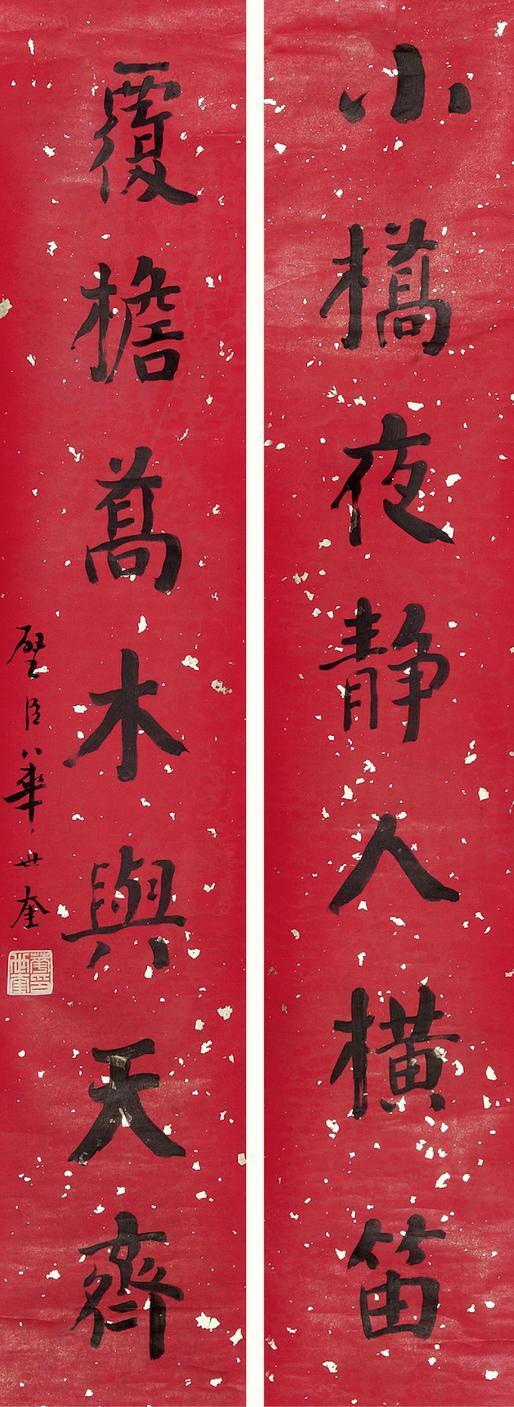 小橋夜静人橫笛
覆檐蒿木與天齊
璧臣華世奎